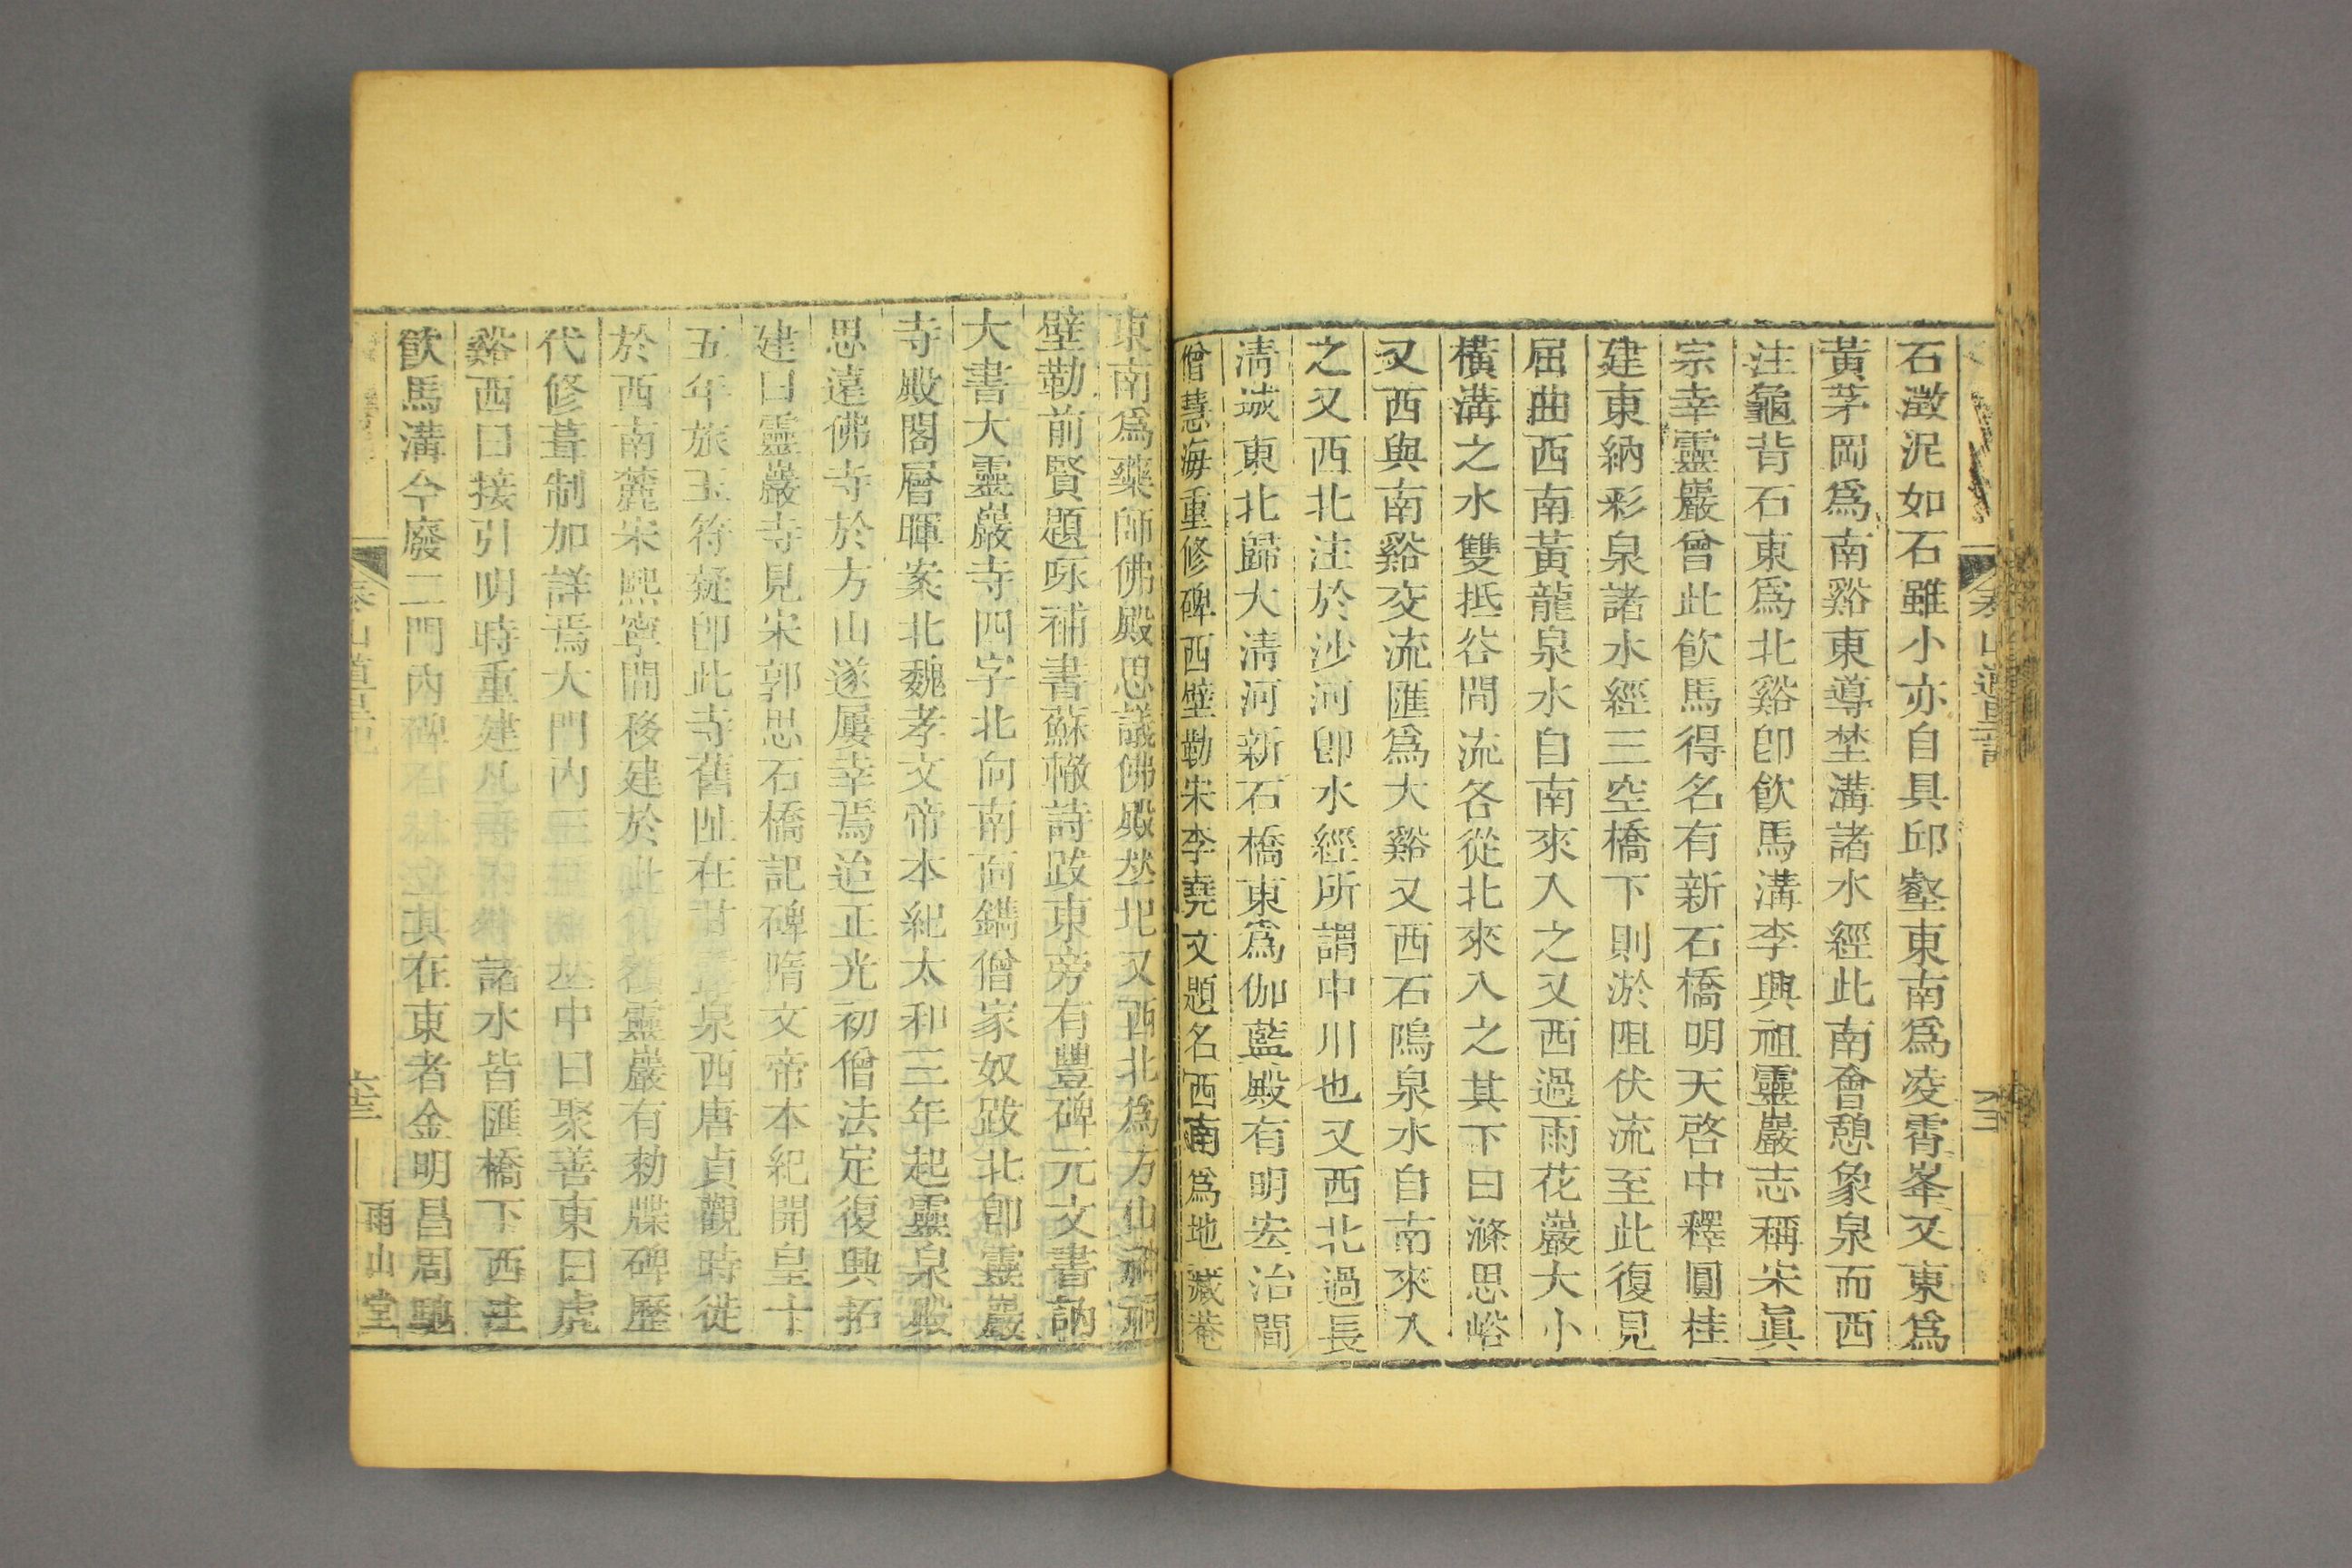 泰山道里記
石澂泥如石雖小亦自具邱壑東南爲凌霄峯又東爲
黃茅岡爲南谿東導埜溝諸水經此南會憩象泉而西
注龜背石東爲北谿卽飲馬溝李興祖靈巖志稱宋眞
宗幸靈巖曾此飲馬得名有新石橋明天啓中釋圓桂
建東納彩泉諸水經三空橋下則淤阻伏流至此復見
屈曲西南黃龍泉水自南來入之又西過雨花巖大小
橫溝之水雙抵谷間流各從北來入之其下曰滌思峪
又西與南谿交流匯爲大谿又西石鳴泉水自南來入
之又西北注於沙河卽水經所謂中川也又西北過長
淸城東北歸大淸河新石橋東爲伽藍殿有明宏治間
僧慧海重修碑西壁勒宋李堯文題名西南爲地藏菴
東南爲藥師佛殿思議佛殿並圯又西北爲方山神祠
壁勒前賢題咏補書蘇轍詩跋東旁有豐碑元文書訥
大書大靈巖寺四字北向南面鐫僧家奴跋北卽靈巖
寺殿閣層暉案北魏孝文帝本紀太和三年起靈泉殿
思遠佛寺於方山遂屢幸焉迨正光初僧法定復興拓
建曰靈巖寺見宋郭思石橋記碑隋文帝本紀開皇十
五年旅王符疑卽此寺舊阯在甘露泉西唐貞觀時徙
於西南麓宋熙寧間移建於此額靈巖有勅牒碑歷
代修葺制加詳焉大門內並中曰聚善東曰虎
谿西曰接引明時重建諸水皆匯橋下西注
飲馬溝今廢二門內碑石林立其在東者金明昌周馳
泰山道里記
六三
雨山堂